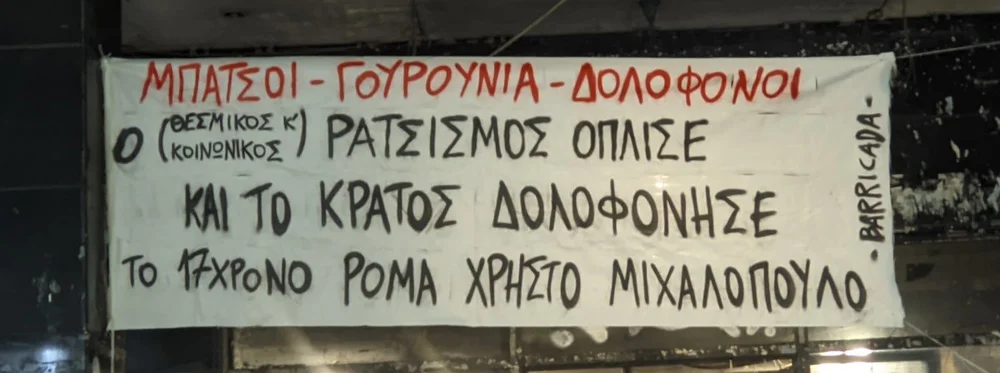 ΜΠΑΤΣΟΙ - ΓΟΥΡΟΥΝΙΑ - ΔΟΛΟΦΟΝΟΙ
Ο (ΘΕΣΜΙΚΟΣ Κ' ΚΟΙΝΩΝΙΚΟΣ) ΡΑΤΣΙΣΜΟΣ ΟΠΛΙΣΕ
ΚΑΙ ΤΟ ΚΡΑΤΟΣ ΔΟΛΟΦΟΝΗΣΕ
ΤΟ 17ΧΡΟΝΟ ΡΟΜΑ ΧΡΗΣΤΟ ΜΙΧΑΛΟΠΟΥΛΟ
- BARRICADA -